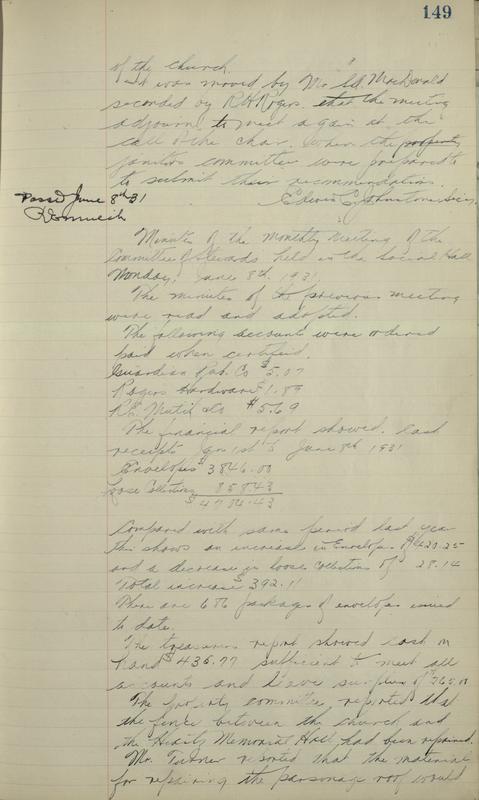 149
of the church.
It was moved by Mr. MacDonald
seconded by R H Rogers that the meeting
adjourn to meet again at the
call of the chair when the property
janitors committee were prepared to
to submit their recommendation.
Passed June 8th 31
Edwin E Johnstone Secy
Minutes of the Monthly Meeting of the
Committee of Stewards held in the Social Hall
Monday, June 8th 1931
The minutes of the previous meeting
were read and adopted.
The following accounts were ordered
paid when certified.
Guardian Pub. Co $5.07
Rogers Hardware $1.89
$5.69
The financial report showed. Cash
receipts Jan 1st to June 8th 1931
Envelopes $3846.00
Loose Collections 858.43
$4704.43
Compared with same period last year
this shows an increase in Envelopes $420.25
and a decrease in loose collections of 28.14
Total increase $392.11
There are 686 packages of envelopes issued
to date.
The treasurers report showed cash on
hand $436.77 sufficient to meet all
accounts and leave surplus of
The property committee reported that
the fence between the church and
the Heartz Memorial Hall had been repaired.
Mr. Turner reported that the material
for repairing the parsonage roof would